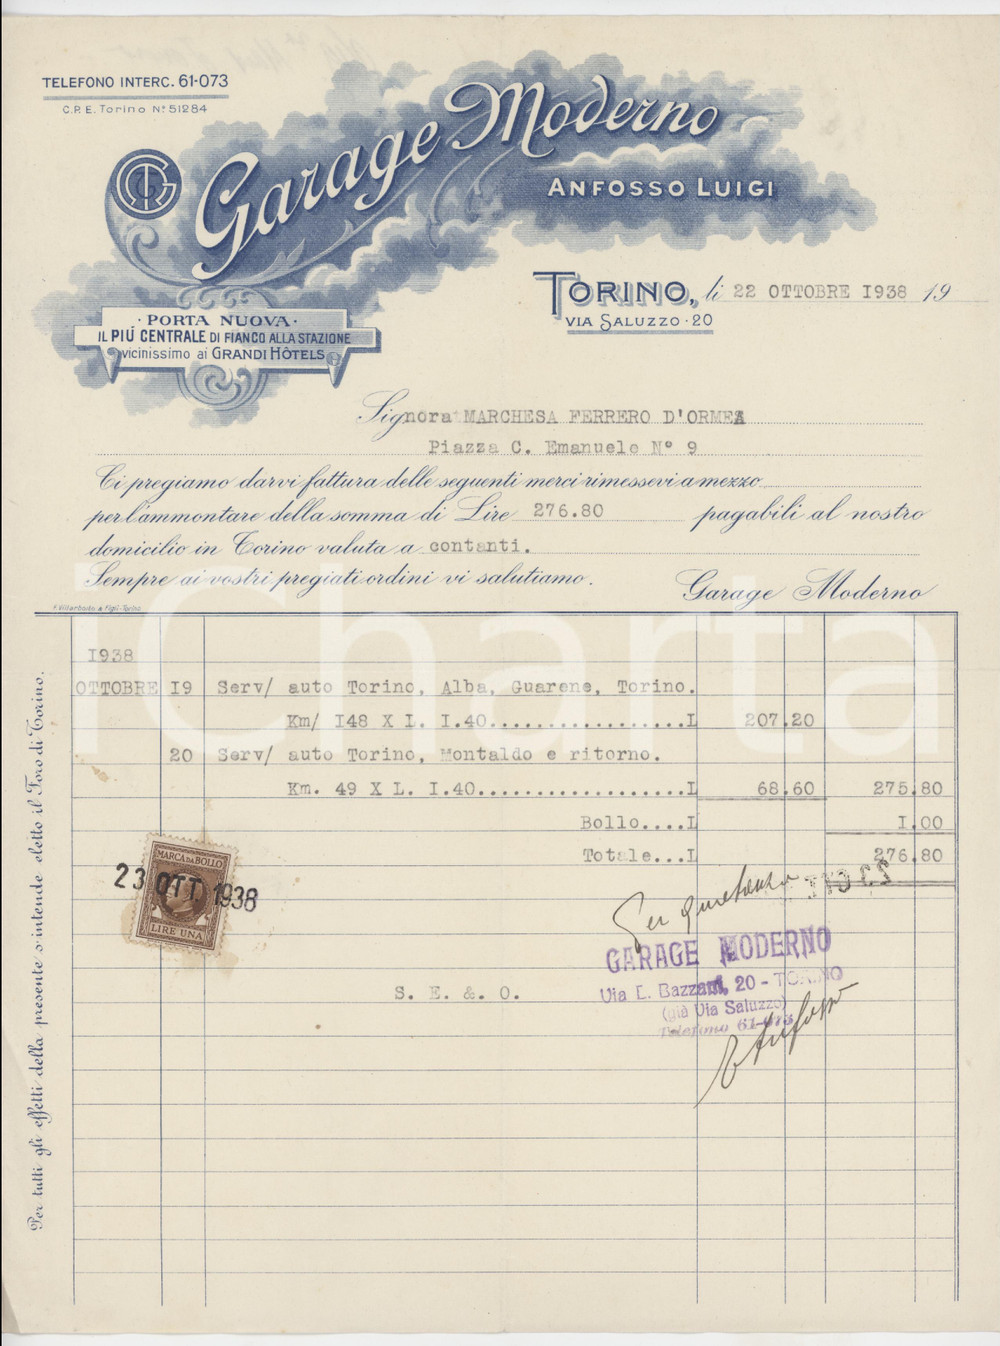 TELEFONO INTERC. 61-073
C.P.E. Torino Nº 51284
Garage Moderno
ANFOSSO LUIGI
TORINO, li 22 OTTOBRE 1938 19
VIA SALUZZO · 20
· PORTA NUOVA ·
IL PIÚ CENTRALE DI FIANCO ALLA STAZIONE
vicinissimo ai GRANDI HÔTELS
Signora MARCHESA FERRERO D'ORMEA
Piazza C. Emanuele Nº 9
Ci pregiamo darvi fattura delle seguenti merci rimessevi a mezzo
per l'ammontare della somma di Lire 276.80 pagabili al nostro
domicilio in Torino valuta a contanti.
Sempre ai vostri pregiati ordini vi salutiamo.
Garage Moderno
F. Villarboito & Figli-Torino
1938
OTTOBRE 19 Serv/ auto Torino, Alba, Guarene, Torino.
Km/ I48 X L. I.40.................L 207.20
20 Serv/ auto Torino, Montaldo e ritorno.
Km. 49 X L. I.40..................L 68.60 275.80
Bollo....L I.00
Totale...L 276.80
MARCA DA BOLLO
23 OTT. 1938
LIRE UNA
Per quietanza
GARAGE MODERNO
Via E. Bazzani, 20 - TORINO
(già Via Saluzzo)
Telefono 61-073
Anfosso
S. E. & O.
Per tutti gli effetti della presente s'intende eletto il Foro di Torino.
iCharta